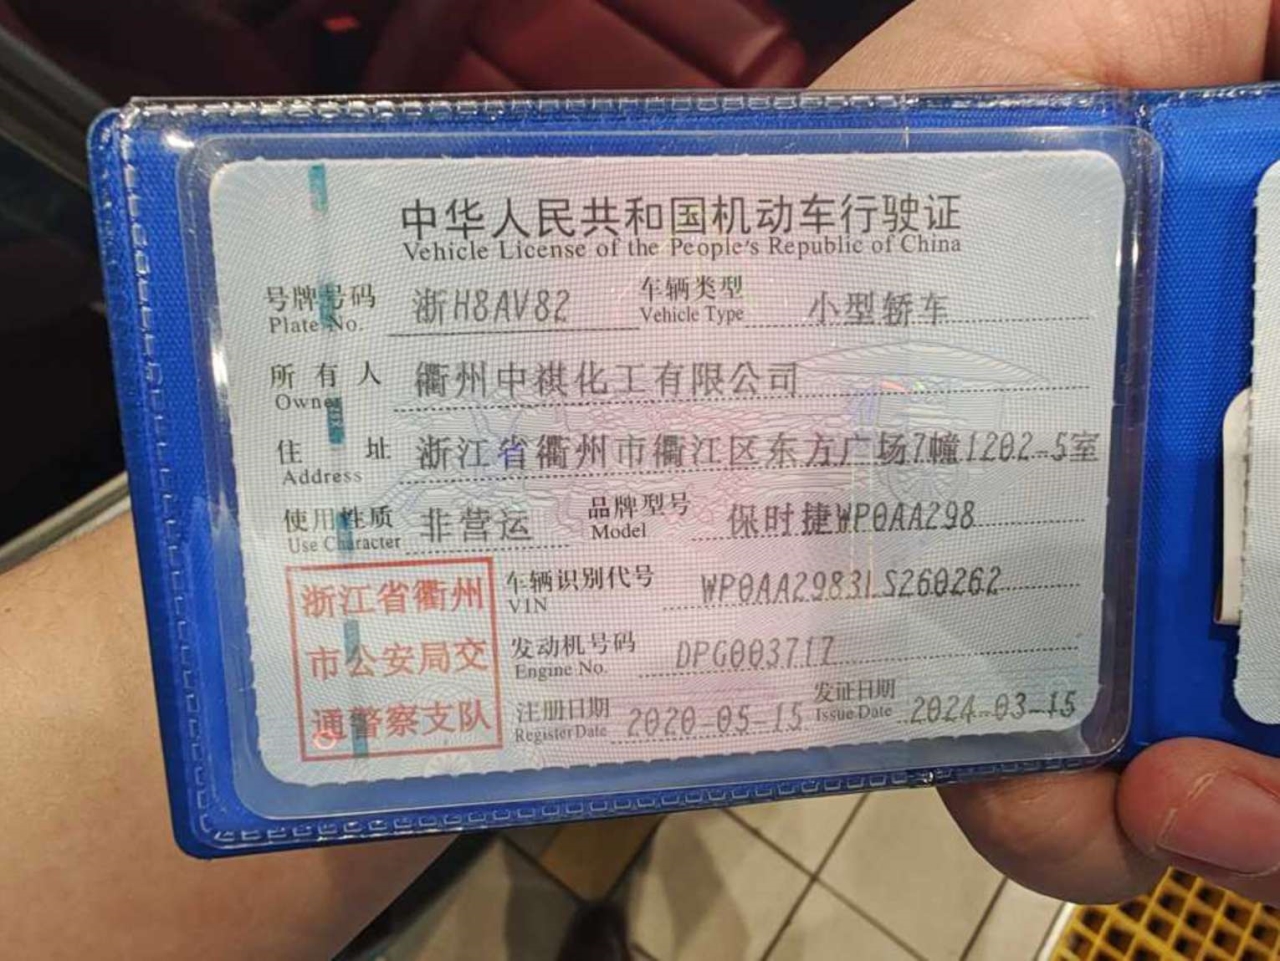 中华人民共和国机动车行驶证
Vehicle License of the People's Republic of China
号牌号码 浙H8AV82 车辆类型 小型轿车
Plate No. Vehicle Type
所有人 衢州中祺化工有限公司
Owner
住址 浙江省衢州市衢江区东方广场7幢1202-5室
Address
使用性质 非营运 品牌型号 保时捷WP0AA298
Use Character Model
浙江省衢州
市公安局交
通警察支队
车辆识别代号 WP0AA2983LS260262
VIN
发动机号码 DPG003717
Engine No.
注册日期 2020-05-15 发证日期 2024-03-15
Register Date Issue Date